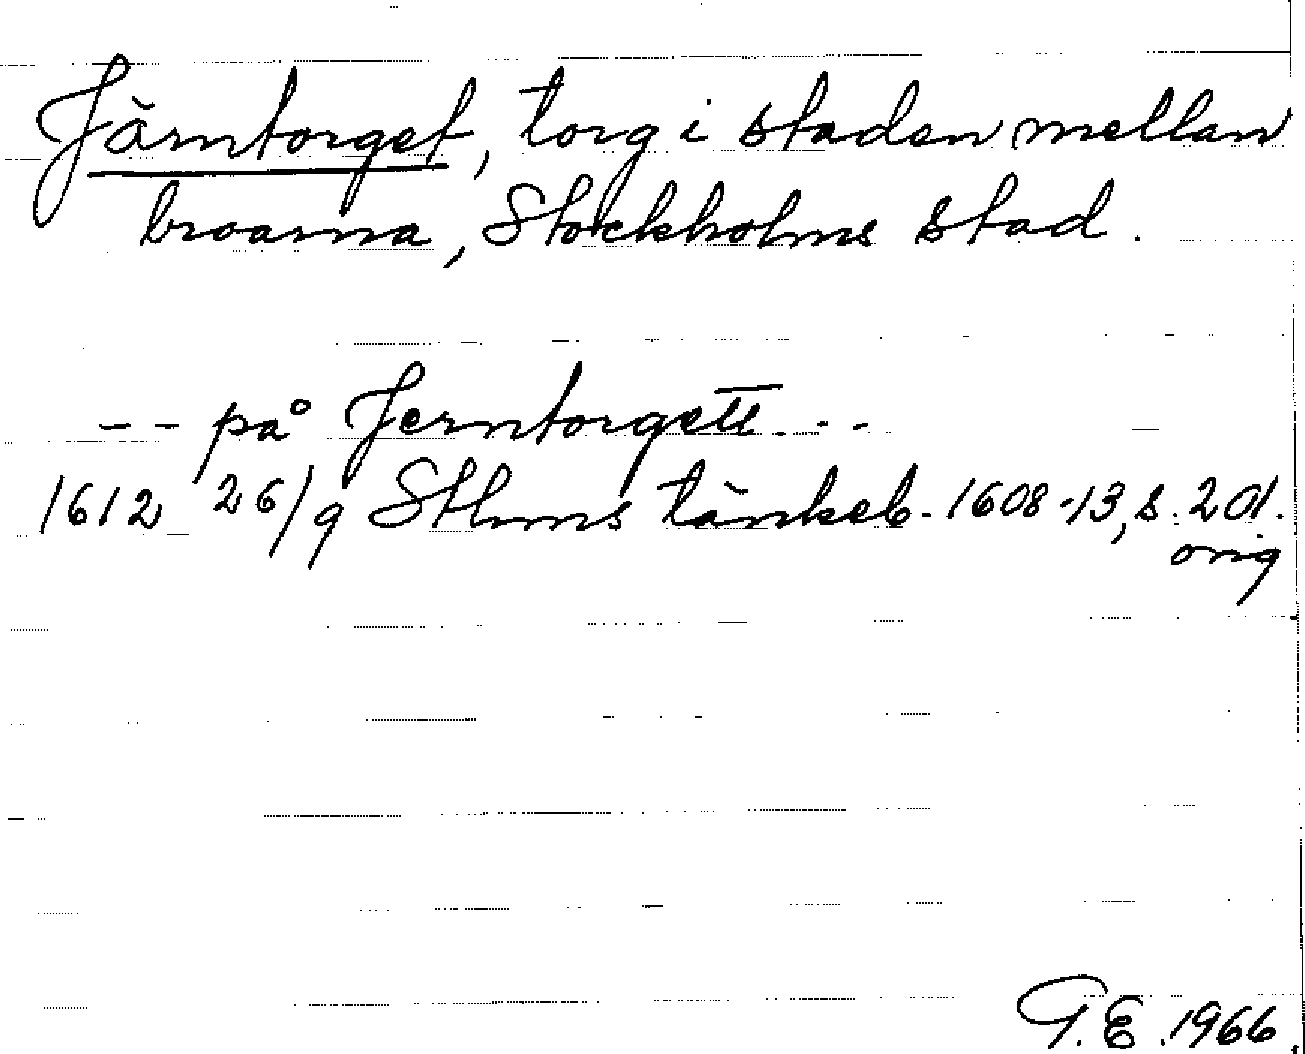 Järntorget, torg i staden mellan
broarna, Stockholms stad.
-- på Jerntorgett ---
1612 26/9 Sthms tänkeb. 1608-13, s. 201.
orig
G.E. 1966